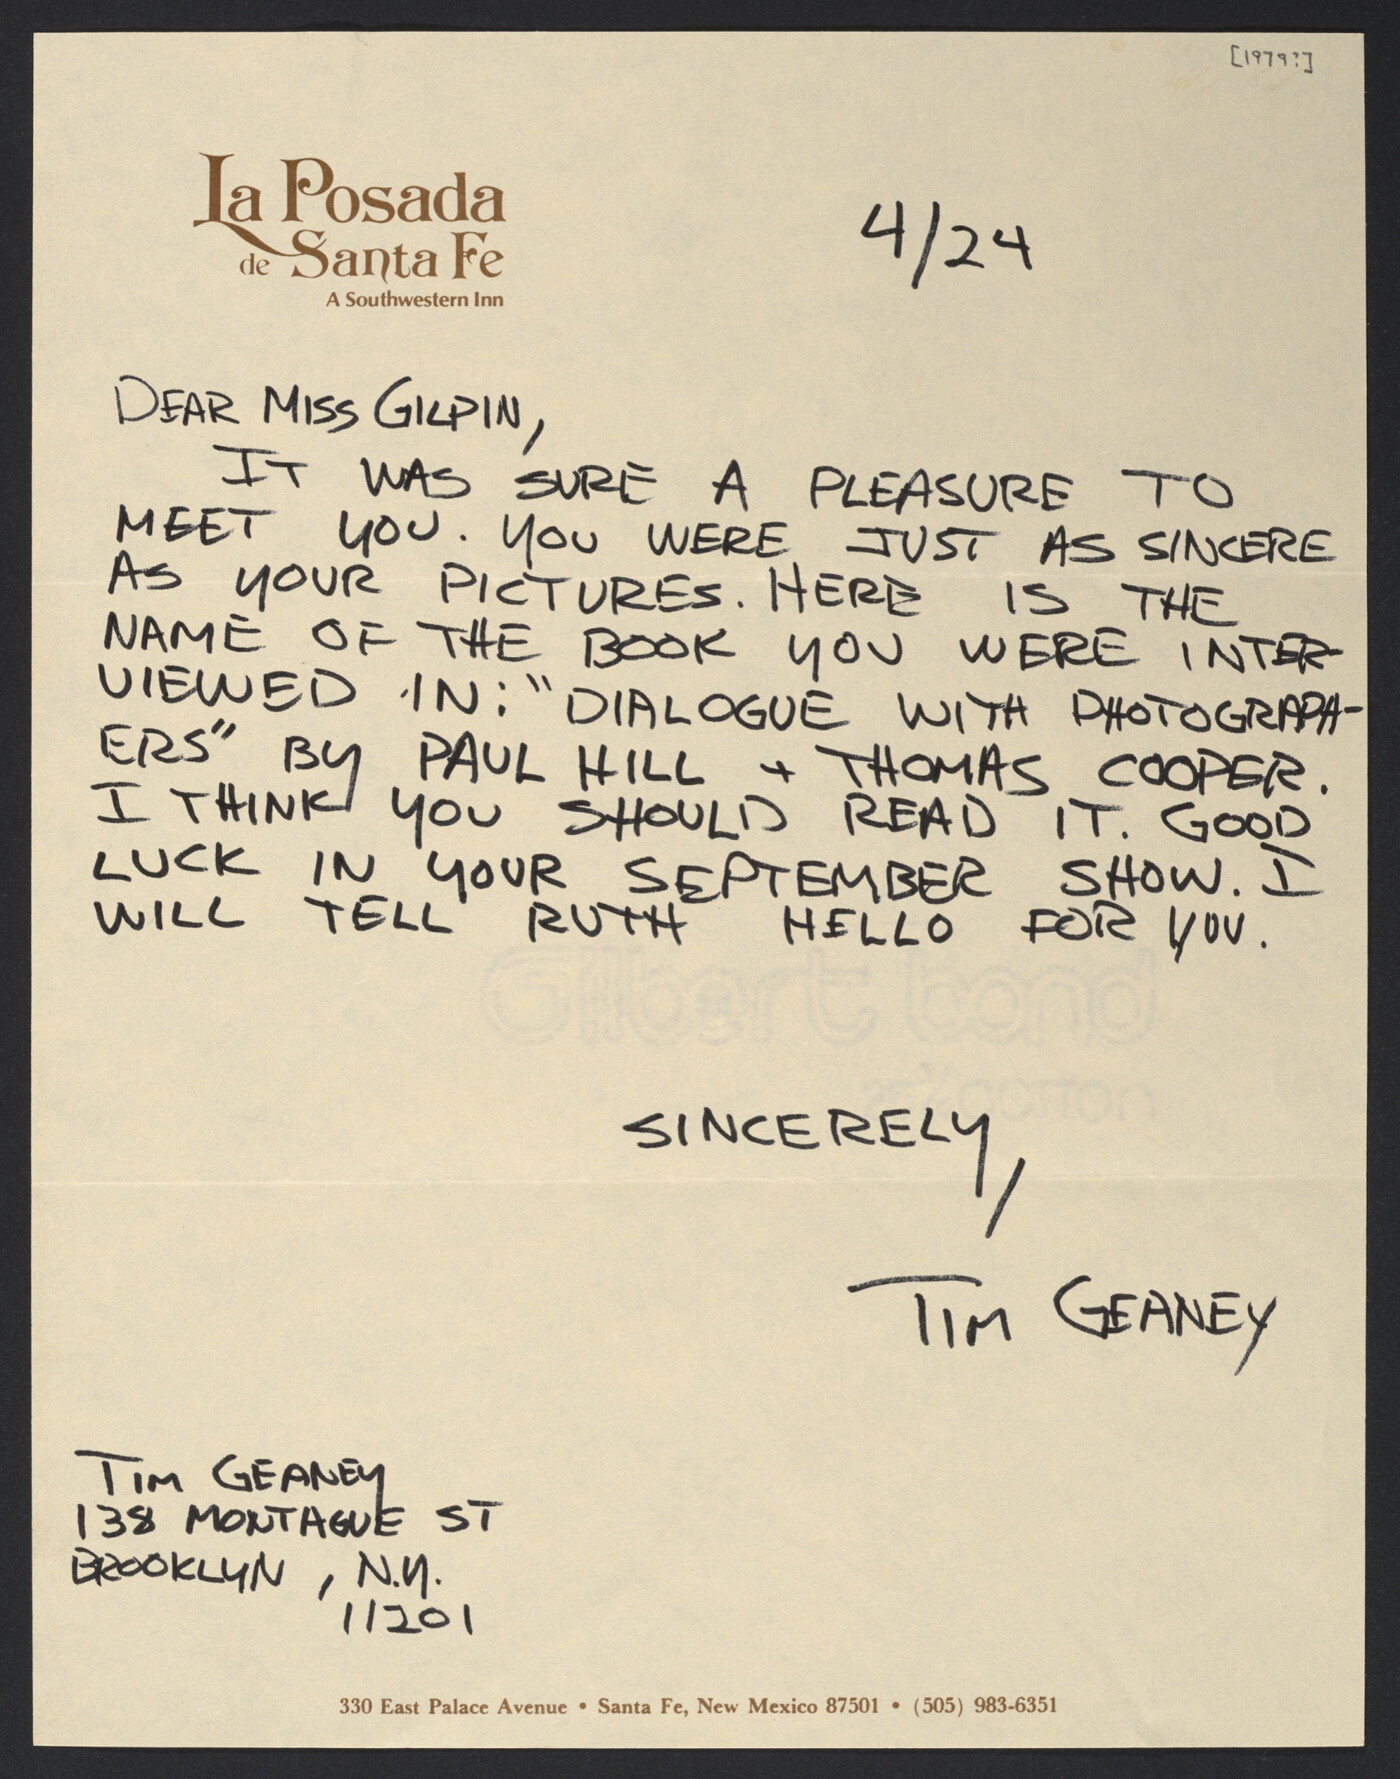 [1979?]
La Posada
de Santa Fe
A Southwestern Inn
4/24
DEAR MISS GILPIN,
IT WAS SURE A PLEASURE TO
MEET YOU. YOU WERE JUST AS SINCERE
AS YOUR PICTURES. HERE IS THE
NAME OF THE BOOK YOU WERE INTER-
VIEWED IN: "DIALOGUE WITH PHOTOGRAPH-
ERS" BY PAUL HILL + THOMAS COOPER.
I THINK YOU SHOULD READ IT. GOOD
LUCK IN YOUR SEPTEMBER SHOW. I
WILL TELL RUTH HELLO FOR YOU.
Gilbert bond
25% COTTON
SINCERELY,
TIM GEANEY
TIM GEANEY
138 MONTAGUE ST
BROOKLYN, N.Y.
11201
330 East Palace Avenue • Santa Fe, New Mexico 87501 • (505) 983-6351